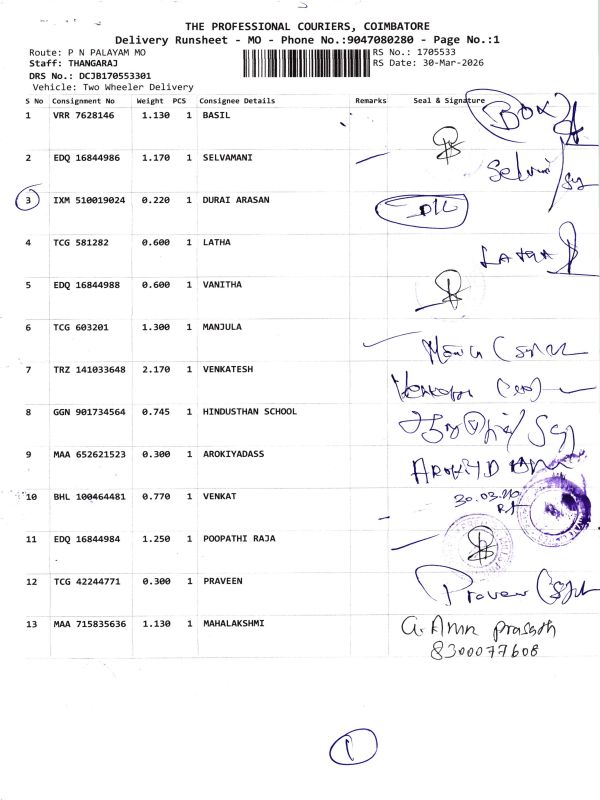 THE PROFESSIONAL COURIERS, COIMBATORE
Delivery Runsheet - MO - Phone No.:9047080280 - Page No.:1
Route: P N PALAYAM MO RS No.: 1705533
Staff: THANGARAJ RS Date: 30-Mar-2026
DRS No.: DCJB170553301
Vehicle: Two Wheeler Delivery
S No Consignment No Weight PCS Consignee Details Remarks Seal & Signature
1 VRR 7628146 1.130 1 BASIL BOX
2 EDQ 16844986 1.170 1 SELVAMANI
3 IXM 510019024 0.220 1 DURAI ARASAN
4 TCG 581282 0.600 1 LATHA LATHA
5 EDQ 16844988 0.600 1 VANITHA
6 TCG 603201 1.300 1 MANJULA
7 TRZ 141033648 2.170 1 VENKATESH
8 GGN 901734564 0.745 1 HINDUSTHAN SCHOOL
9 MAA 652621523 0.300 1 AROKIYADASS
10 BHL 100464481 0.770 1 VENKAT
11 EDQ 16844984 1.250 1 POOPATHI RAJA
12 TCG 42244771 0.300 1 PRAVEEN Praveen
13 MAA 715835636 1.130 1 MAHALAKSHMI G. Arun prasath
8300077608
1